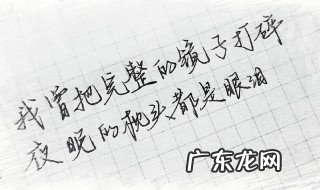 我曾把完整的镜子打碎
夜晚的枕头都是眼泪
广东龙网